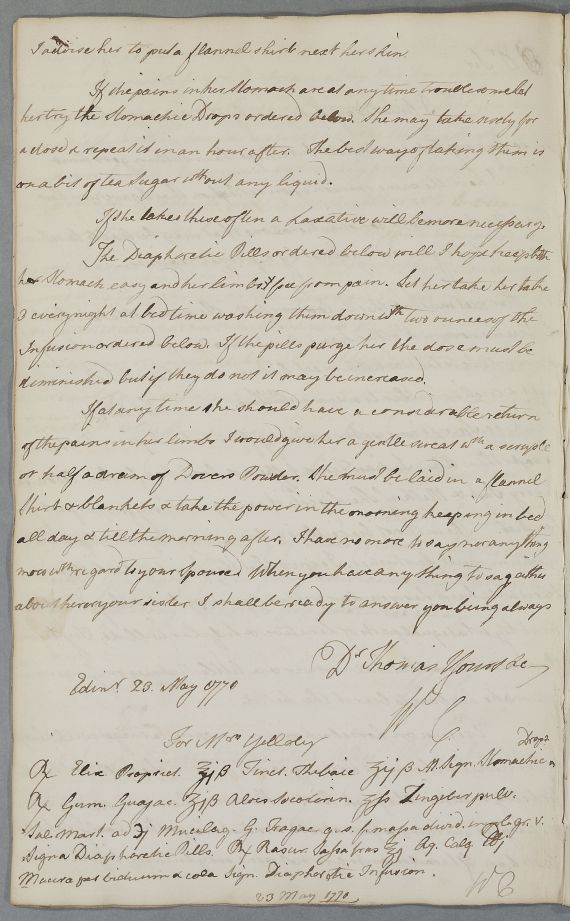 I advise her to put a flannel shirt next her skin.
If the pains in her stomach are at any time troublesome let
her try the Stomachic Drops ordered below. She may take sixty for
a dose & repeat it in an hour after. The best way of taking them is
on a bit of tea Sugar wthout any liquid.
If she takes these often a Laxative will be more necessary.
The Diaphoretic Pills ordered below will I hope keep both
her Stomach easy and her limbs free from pain. Let her take her take
3 every night at bed time washing them down wth two ounces of the
Infusion ordered below. If the pills purge her the dose must be
diminished but if they do not it may be increased.
If at any time she should have a considerable return
of the pains in her limbs I would give her a gentle sweat wth a scruple
or half a dram of Dovers Powder. She must be laid in a flannel
Shirt & blankets & take the power in the morning keeping in bed
all day & till the morning after. I have no more to say nor any thing
more wth regard to your Spouse. When you have any thing to say either
about her or your sister I shall be ready to answer you being always
Dr Thomas Yours &c
Edinr. 23. May 1770
W C
For Mrs Yelloly
Drops
℞ Elix Propriet. ʒjß Tinct. Thebaic ʒijß M. Sign. Stomachic
℞ Gum. Guajac. ʒjß Aloes Socotorin. ʒſs Zingiber pulv.
Sal. Mart. ad ℈j Mucilag. G. Tragac. q. s. f. massa divid. in pil. gr. v.
Signa Diaphoretic Pills. ℞ Rasur. Sassafras ℥j Aq. Calq. ℔j
Macera per biduum & cola Sign. Diaphoretic Infusion.
W C
23 May 1770